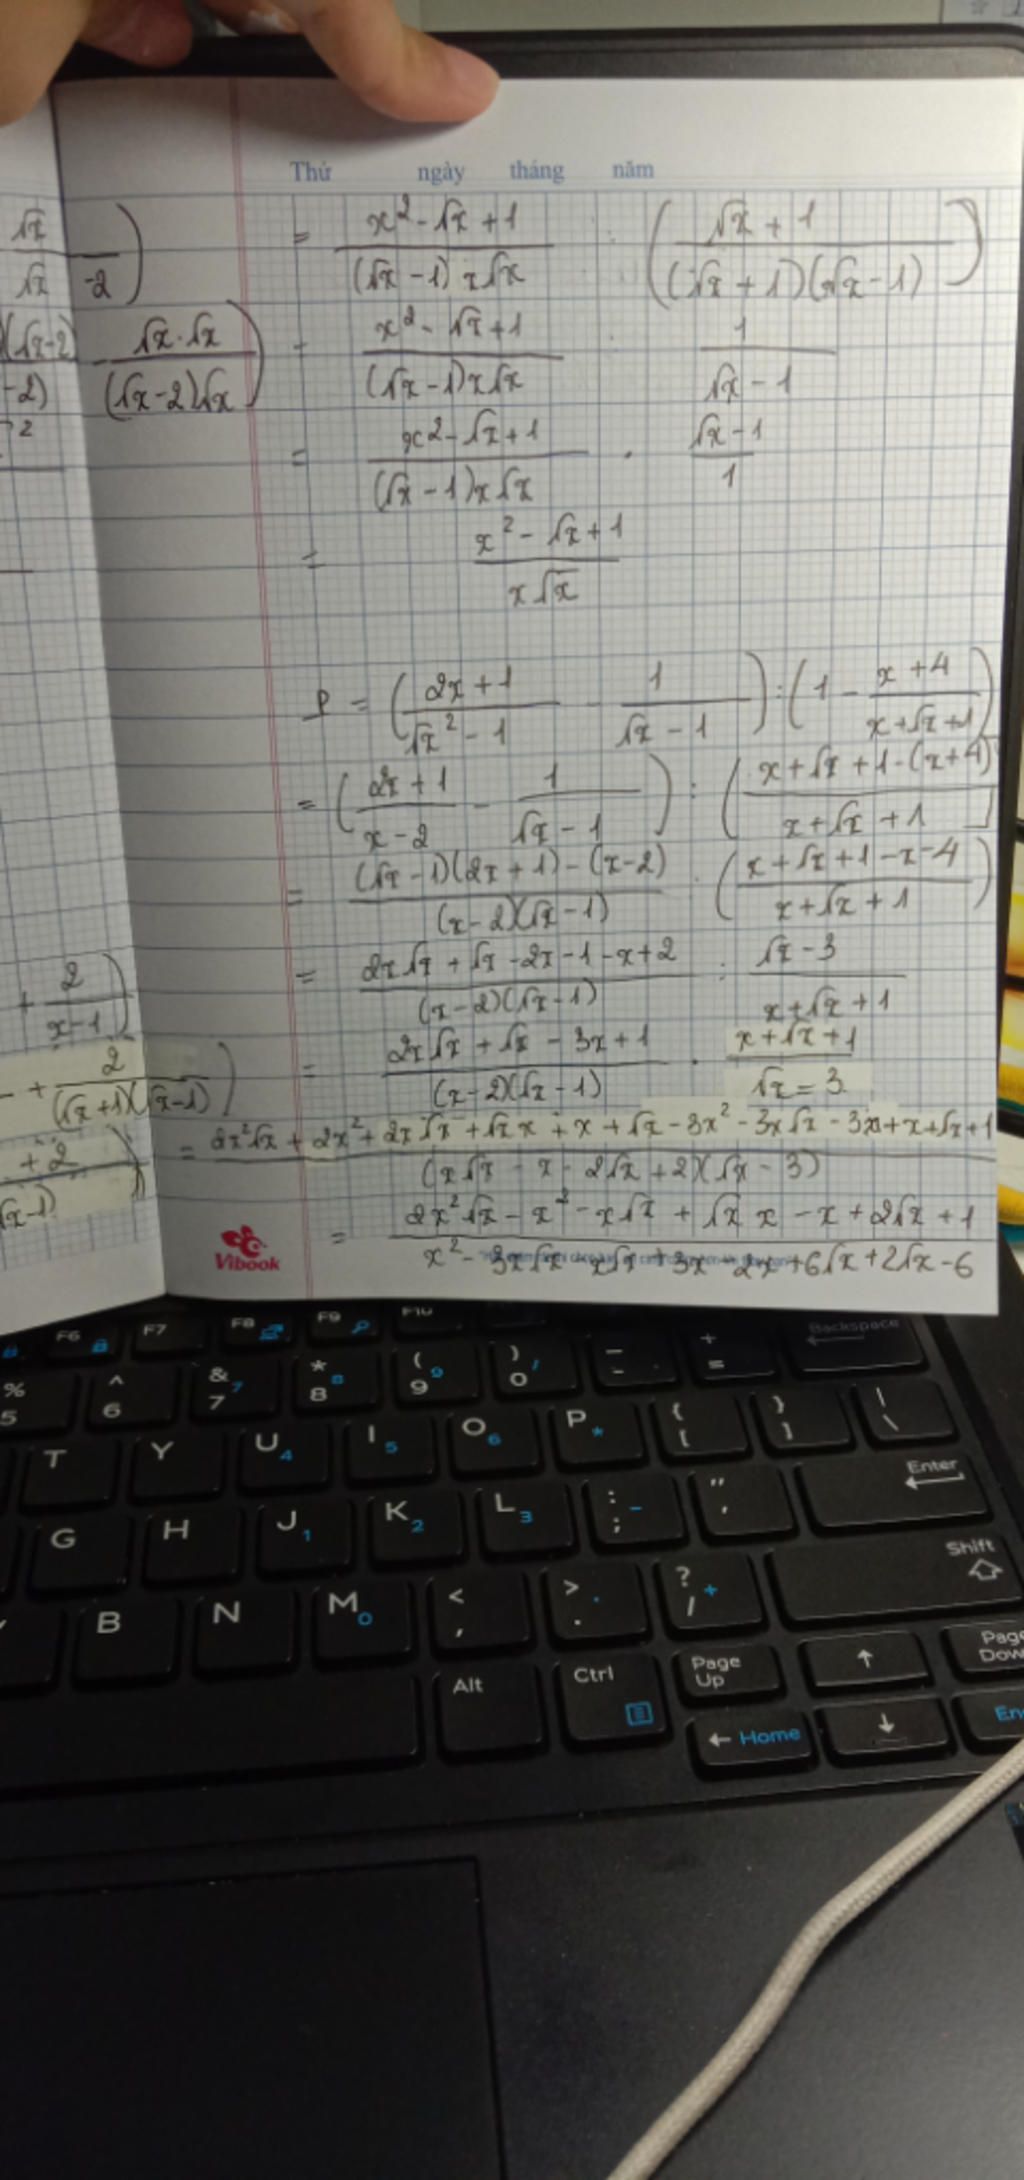 Thứ ngày tháng năm
√x
√x -2 )
= x² - √x + 1 / (√x - 1) x√x : ( √x + 1 / (√x + 1)(√x - 1) )
(√x-2) / -2) - √x.√x / (√x-2)√x )
= x² - √x + 1 / (√x - 1)x√x : 1 / √x - 1
= x² - √x + 1 / (√x - 1)x√x . √x - 1 / 1
= x² - √x + 1 / x√x
P = ( 2x + 1 / √x² - 1 - 1 / √x - 1 ) : ( 1 - x + 4 / x + √x + 1 )
= ( 2x + 1 / x - 2 - 1 / √x - 1 ) : ( x + √x + 1 - (x + 4) / x + √x + 1 )
= (√x - 1)(2x + 1) - (x - 2) / (x - 2)(√x - 1) : ( x + √x + 1 - x - 4 / x + √x + 1 )
= 2x√x + √x - 2x - 1 - x + 2 / (x - 2)(√x - 1) : √x - 3 / x + √x + 1
+ 2 / x - 1 )
= 2x√x + √x - 3x + 1 / (x - 2)(√x - 1) . x + √x + 1 / √x = 3
- + 2 / (√x + 1)(√x - 1) )
= 2x²√x + 2x² + 2x√x + √x x + x + √x - 3x² - 3x√x - 3x + x + √x + 1 / (x√x - x - 2√x + 2)(√x - 3)
+ 2 / √x - 1) )
= 2x²√x - x² - x√x + √x x - x + 2√x + 1 / x² - 3x√x - x√x + 3x - 2x + 6√x + 2√x - 6
Vibook
F6 F7 F8 F9 F10 Backspace
% 5 ^ 6 & 7 7 * 8 8 ( 9 9 ) 0 / _ - + = 
T Y U 4 I 5 O 6 P * { [ } ] | \
G H J 1 K 2 L 3 : ; - " ' Enter
B N M 0 < , > . . ? / + Shift
Alt Ctrl Page Up ↑ Page Dow
← Home ↓ En